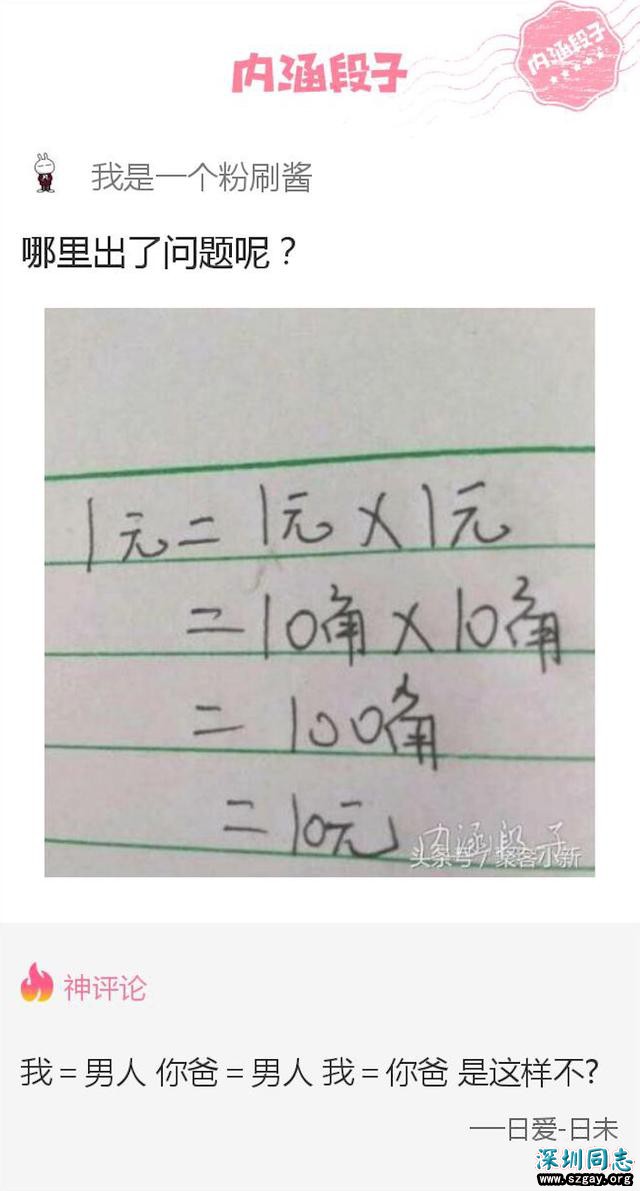 内涵段子
内涵段子
我是一个粉刷酱
哪里出了问题呢？
1元=1元×1元
=10角×10角
=100角
=10元
内涵段子
头条号/聚客小新
神评论
我=男人 你爸=男人 我=你爸 是这样不?
──日爱-日未
深圳同志
www.szgay.org